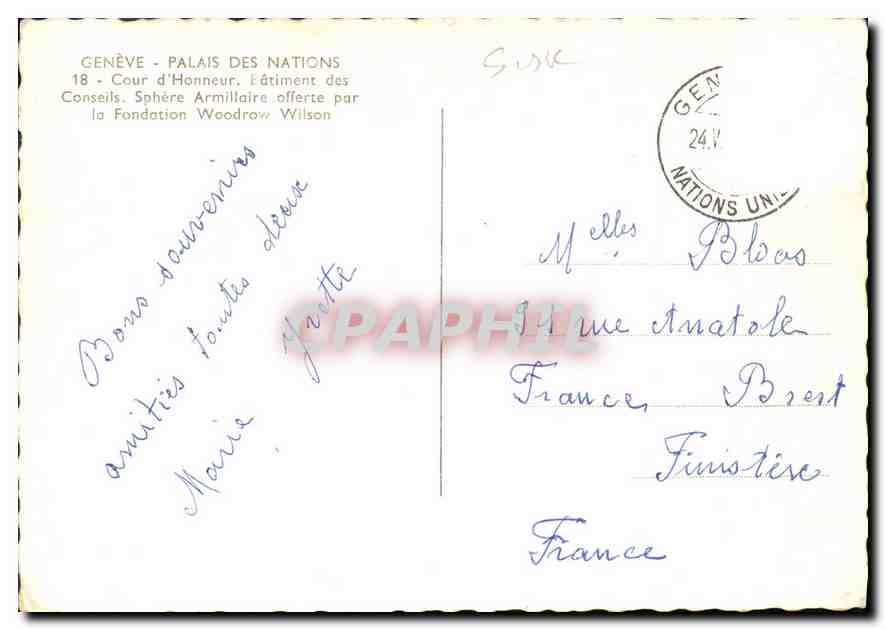 GENÈVE - PALAIS DES NATIONS
18 - Cour d'Honneur. Bâtiment des
Conseils. Sphère Armillaire offerte par
la Fondation Woodrow Wilson
Bons souvenirs
amitiés toutes deux
Marie Yvette
GEN
24.V
NATIONS UNI
Melles Bloas
rue Anatole
France, Brest
Finistère
France
CPAPHIL